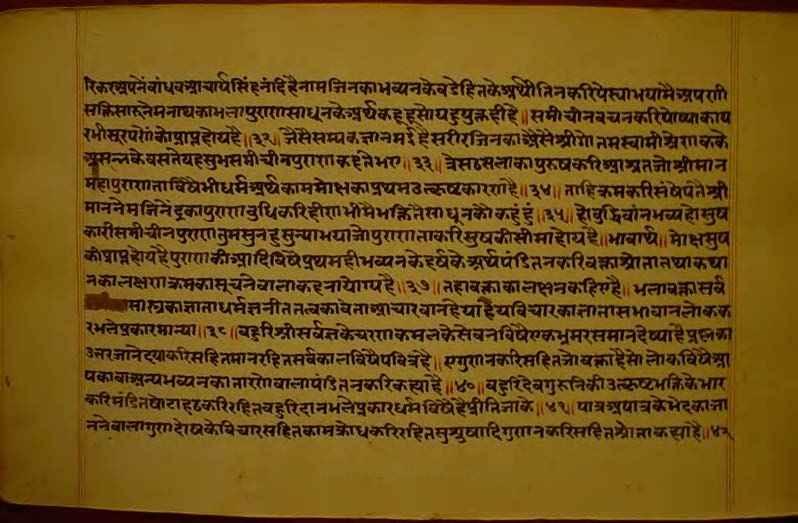 रिकरअपनेंबांधवआचार्यसिंहनंदिंहैनामजिनकाभव्यनकेबडेहितकेअर्थैतिनकरिपेस्याभयामैअपरणी
सक्तिसारूनेमनाथकाभलापुराणसाधूनकेअर्थकहूहूसोयहयुक्तहीहै॥समीचीनबचनकरिपोष्याकाय
रभीसूरपणेंकोंप्राप्तहोयहै॥३२॥जैसैंसम्यकज्ञानमईहैसरीरजिनकाअैसेश्रीगोतमस्वामीश्रेणकके
प्रसन्नकेबसतेयहसुभसमीचीनपुराणकहतेभए॥३३॥त्रेसठसलाकापुरुषकरिआश्रतजोश्रीमान
महापुराणताविषैंभीधर्मअर्थकाममोक्षकाप्रथमउत्कृष्टकारणहै॥३४॥ताहिक्रमकरिसंषेपतैश्री
माननेमजिनेंद्रकापुराणबुधिकरिहीणभीमैभक्तितैसाधूनकौंकहुंहुं॥३५॥हेबुद्धिवांनभव्यहोसुष
कारीसमीचीनपुराणतुमसुनहुसुन्याभयाजोपुराणताकरिसुषकीसीमाहोयहै॥भावार्थ॥मोक्षसुष
कीप्राप्तहोयहैपुराणकीआदिविषैप्रथमहीभव्यनकेहर्षकेअर्थपंडितनकरिवक्ताश्रोतातथाकथा
नकालक्षणक्रमकासूचनेवालाकहनायोग्यहै॥३७॥तहावक्ताकालक्षनकहिएहै॥भलावक्तासर्व
सास्त्रकाज्ञाताधर्मज्ञनीततत्वकावेताआचारवानहेयाहेयविचारकाज्ञातासभावानलोकक
रभलेप्रकारमान्या॥३८॥बहुरिश्रीसर्वज्ञकेचरणकमलकेसेवनविषैएकभ्रमरसमानदेष्याहैप्रश्नका
उत्तरजानेदयाकरिसहितमानरहितसर्वकालविषैपवित्रहै॥एगुणनकरिसहितजोवक्ताहैसोलोकविषैआ
पकावाअन्यभव्यनकातारणेवालापंडितनकरिकह्याहै॥४०॥बहुरिदेवगुरूनिकीउत्कृष्टभक्तिकेभार
करिमंडितषोटाहठकरिरहितबहुरिदानभलेप्रकारधर्मविषैहैप्रीतिजाके॥४१॥पात्रअपात्रकेभेदकाजा
ननेवालागुणदोषकेविचारसहितकामक्रोधकरिरहितसुश्रुषादिगुणनकरिसहितश्रोताकह्याहै॥४२